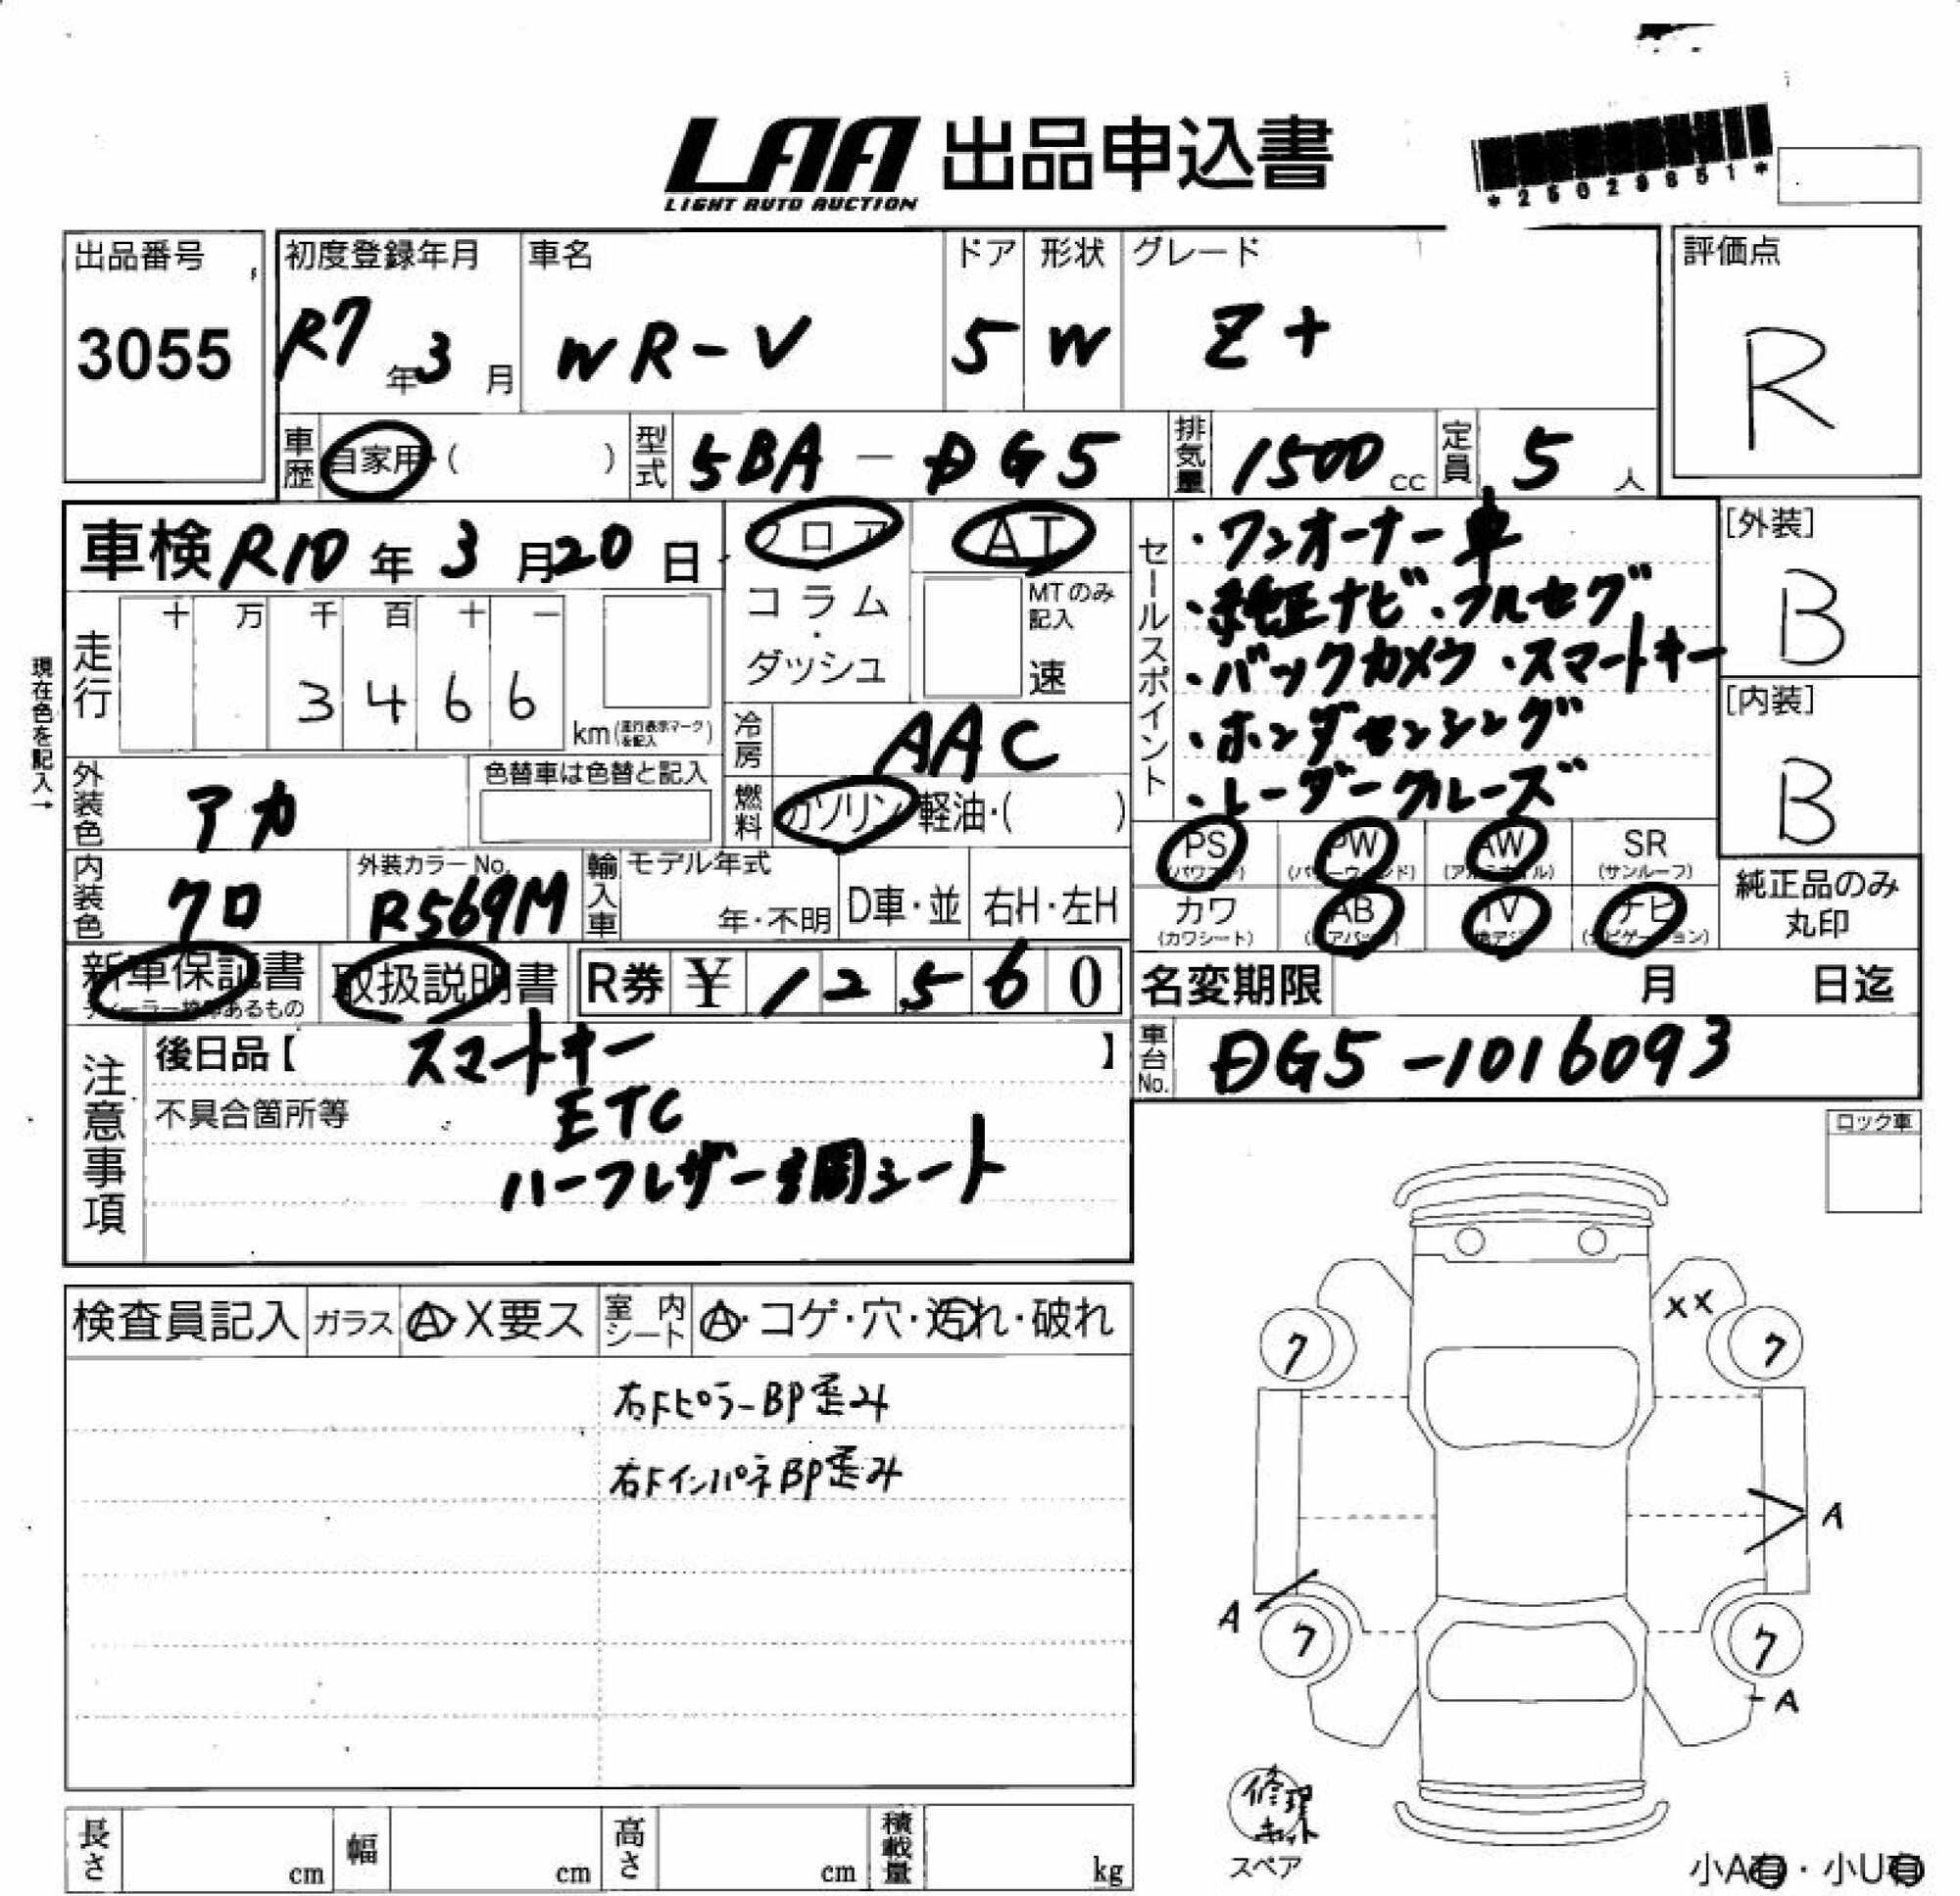 LAA 出品申込書
LIGHT AUTO AUCTION
*26029851*
出品番号
3055
初度登録年月
R7年3月
車名
WR-V
ドア
5
形状
W
グレード
Z+
評価点
R
車歴
自家用・( )
型式
5BA-DG5
排気量
1500cc
定員
5人
車検 R10年3月20日
フロア
コラム・ダッシュ
AT
MTのみ記入
速
セールスポイント
・ワンオーナー車
・純正ナビ・フルセグ
・バックカメラ・スマートキー
・ホンダセンシング
・レーダークルーズ
[外装]
B
[内装]
B
現在色を記入→
走行
十 万 千 百 十 一
3 4 6 6
km(走行表示マークを記入)
冷房
AAC
外装色
アカ
色替車は色替と記入
燃料
ガソリン・軽油・( )
内装色
クロ
外装カラーNo.
R569M
輸入車
モデル年式
年・不明
D車・並
右H・左H
PS PW AW SR
(パワステ) (パワーウィンド) (アルミホイル) (サンルーフ)
カワ AB TV ナビ
(カワシート) (エアバッグ) (地デジ) (ナビゲーション)
純正品のみ丸印
新車保証書
取扱説明書
R券 ¥12560
名変期限 月 日迄
注意事項
後日品【 スマートキー 】
不具合箇所等
ETC
ハーフレザー調シート
車台No.
DG5-1016093
ロック車
検査員記入
ガラス
A・X要ス
室内シート
A・コゲ・穴・汚れ・破れ
右Fピラ-BP歪み
右FインパネBP歪み
XX
ク ク
A
A
ク ク
A
修理キット
スペア
長さ cm
幅 cm
高さ cm
積載量 kg
小A有・小U有